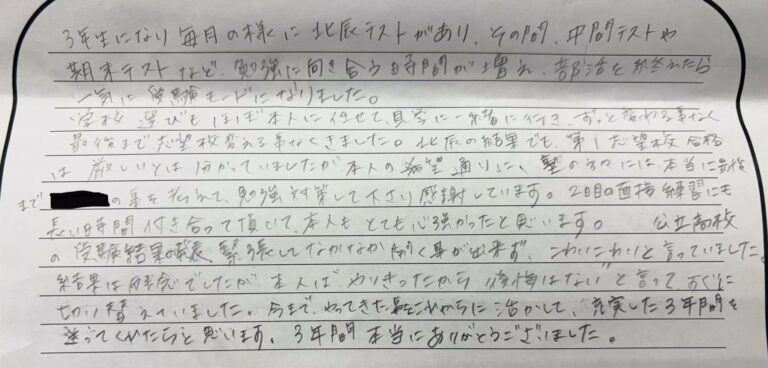 3年生になり毎月の様に北辰テストがあり、その間、中間テストや
期末テストなど、勉強に向き合う時間が増え、部活を終えたら
一気に受験モードになりました。
学校選びもほぼ本人に任せて、見学に一緒に行き、ずっと変わる事なく
最後まで志望校変える事なくきました。北辰の結果でも、第1志望校合格
は厳しいとは分かっていましたが、本人の希望通りに、塾の方々には本当に最後
まで の事を考えて、勉強対策して下さり感謝しています。2日目の面接練習にも
長い時間付き合って頂いて、本人もとても心強かったと思います。 公立高校
の受験結果の発表、緊張してなかなか開く事が出来ず、こわいこわいと言っていました。
結果は残念でしたが、本人は"やりきったから後悔はない"と言って、すぐに
切り替えていました。今まで、やってきた事をこれからに活かして、充実した3年間を
送ってくれたらと思います。3年間本当にありがとうございました。